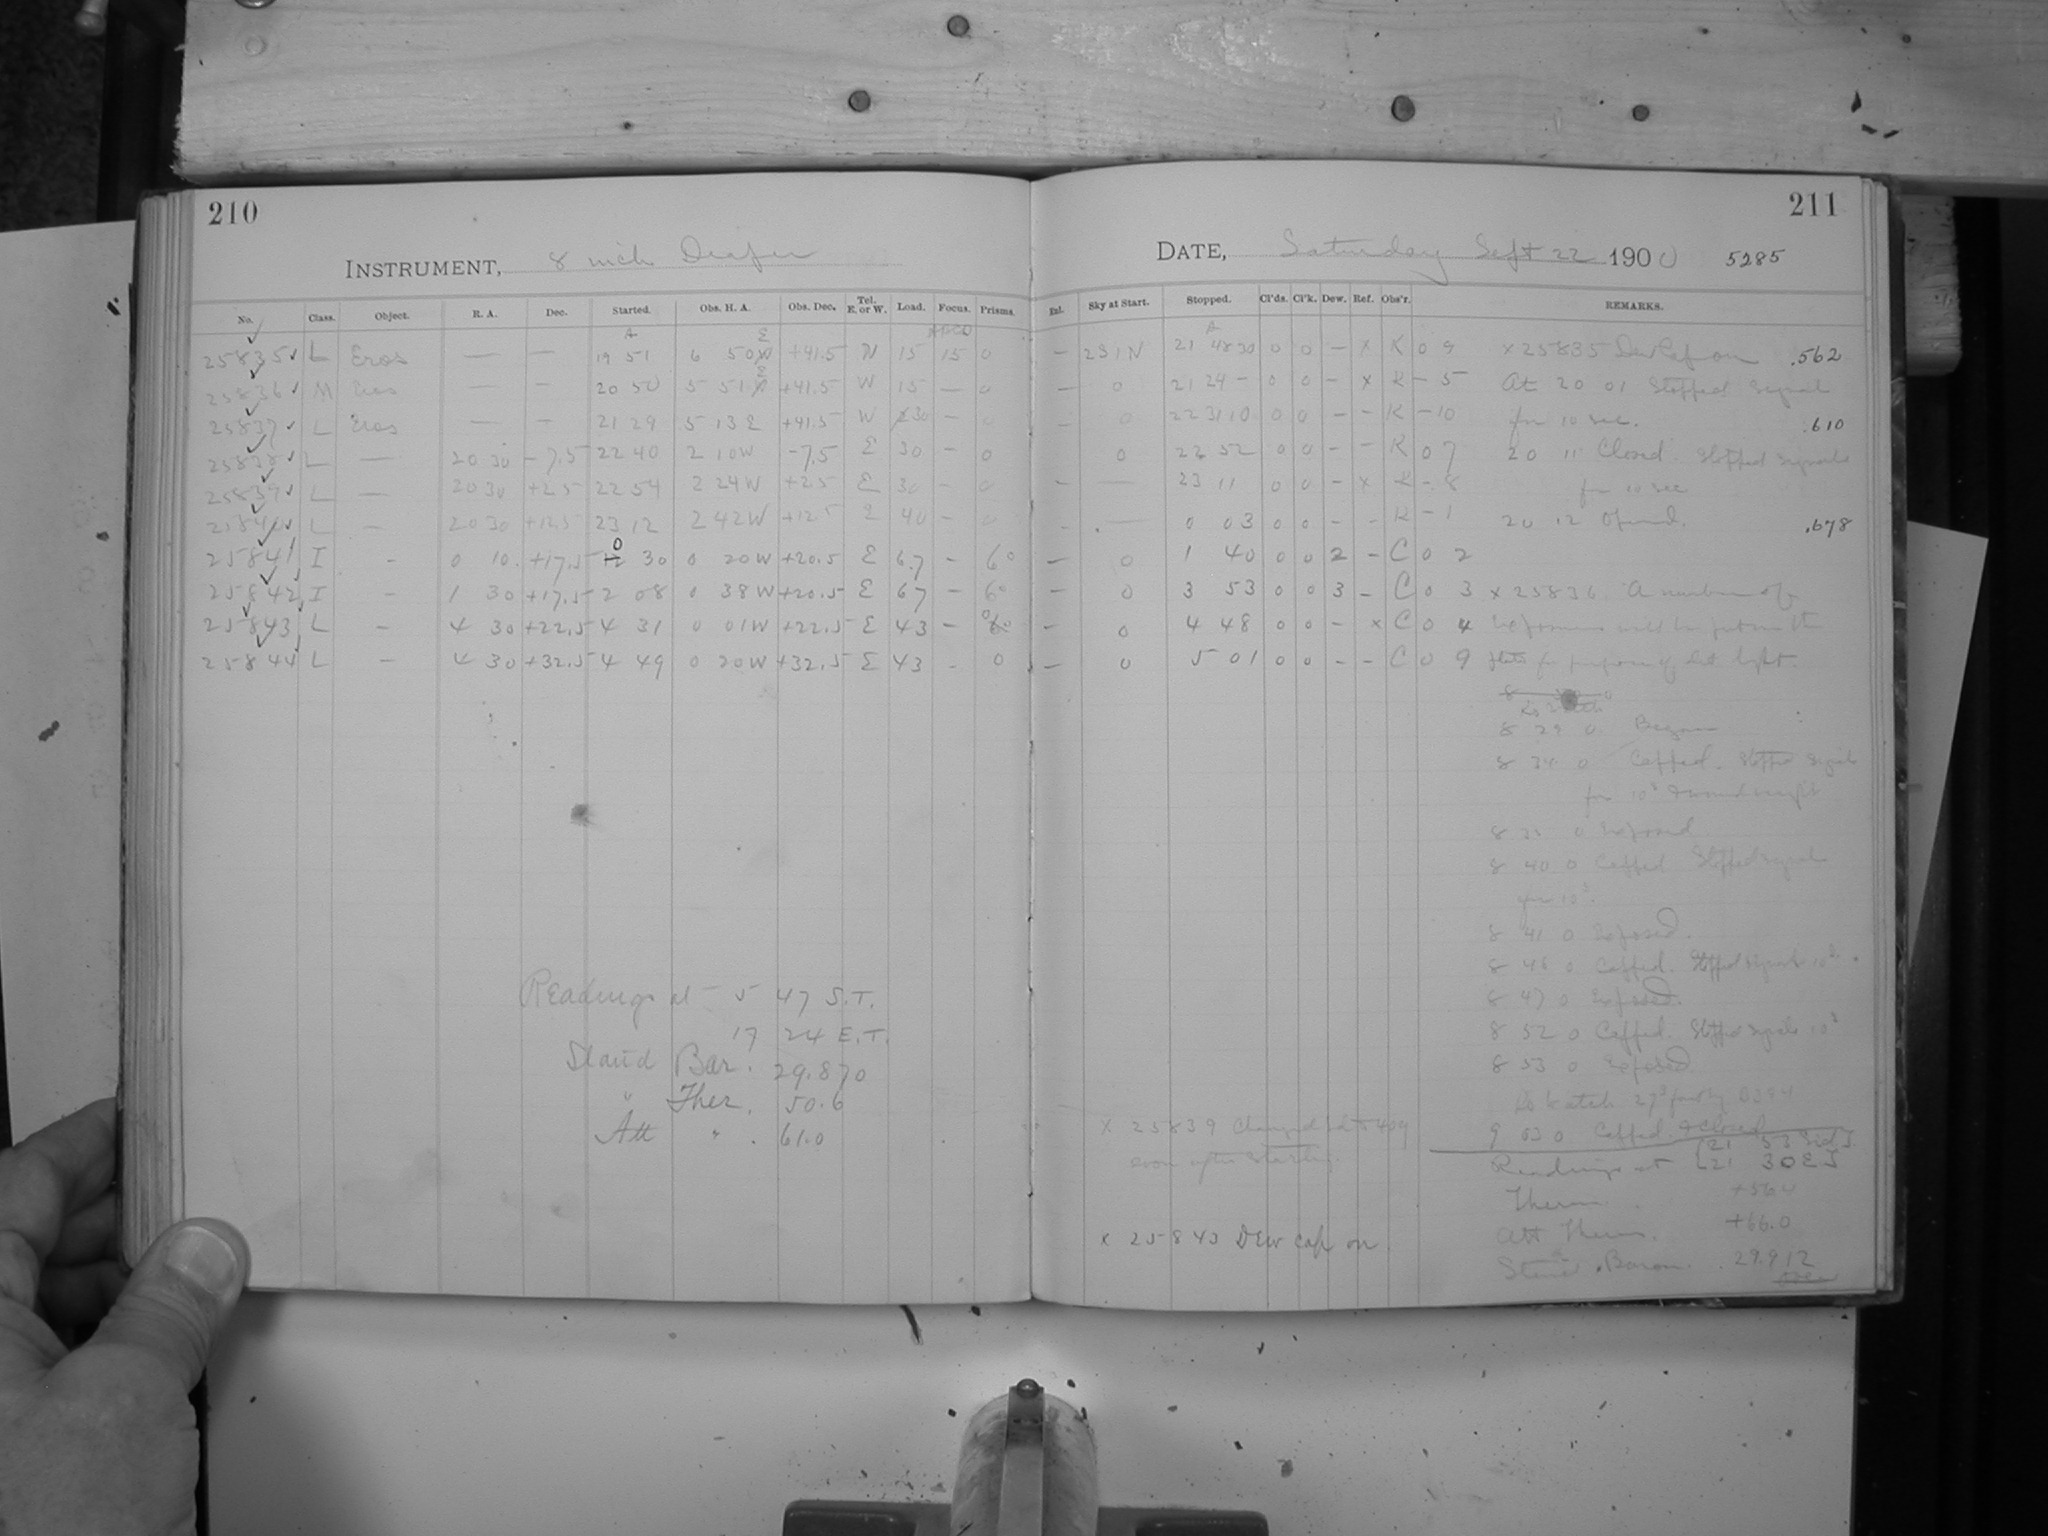 210
INSTRUMENT, 8 inch Draper
No. Class. Object. R. A. Dec. Started. Obs. H. A. Obs. Dec. Tel. E. or W. Load. Focus. Prisms.
25835 L Eros — — 19 51 6 50 E +41.5 W 15 15 0
25836 M Eros — — 20 50 5 51 E +41.5 W 15 — 0
25837 L Eros — — 21 29 5 13 E +41.5 W 30 — 0
25838 L — 20 30 -7.5 22 40 2 10 W -7.5 E 30 — 0
25839 L — 20 30 +2.5 22 54 2 24 W +2.5 E 30 — 0
25840 L — 20 30 +12.5 23 12 2 42 W +12.5 E 40 — 0
25841 I — 0 10 +17.5 0 30 0 20 W +20.5 E 67 — 60
25842 I — 1 30 +17.5 2 08 0 38 W +20.5 E 67 — 60
25843 L — 4 30 +22.5 4 31 0 01 W +22.5 E 43 — 0
25844 L — 4 30 +32.5 4 49 0 20 W +32.5 E 43 — 0
Readings at 5 47 S.T.
17 24 E.T.
Stand Bar. 29.870
" Ther. 50.6
Att " . 61.0
211
DATE, Saturday Sept 22 1900 5285
Rel. Sky at Start. Stopped. Cl'ds. Cl'k. Dew. Ref. Obs'r. REMARKS.
— 231N 21 48 30 0 0 — x K 0 9 x 25835 Dew Cap on .562
— 0 21 24 — 0 0 — x K — 5 At 20 01 Stopped Signal
0 22 31 10 0 0 — — K — 10 for 10 sec. .610
0 22 52 0 0 — — K 0 7 20 11 Closed. Stopped signals
— — 23 11 0 0 — x K — 8 for 10 sec
— — 0 03 0 0 — — K — 1 20 12 Opened. .678
— 0 1 40 0 0 2 — C 0 2
— 0 3 53 0 0 3 — C 0 3 x 25836. A number of
— 0 4 48 0 0 — x C 0 4 exposures will be put on the
— 0 5 01 0 0 — — C 0 9 for purpose of light.
8 29 0 Began
8 34 0 Capped. Stopped Signals
for 10s
8 0 Exposed
8 40 0 Capped Stopped signals
for 10s.
8 41 0 Exposed.
8 46 0 Capped. Stopped signals 10s.
8 47 0 Exposed.
8 52 0 Capped. Stopped signals 10s
8 53 0 Exposed
9 03 0 Capped & Closed
x 25839 Changed
after starting.
x 25843 Dew cap on.
Readings at 21 53 Sid T.
21 30 E T
Therm.
Att Therm. +66.0
Stand. Barom. 29.912